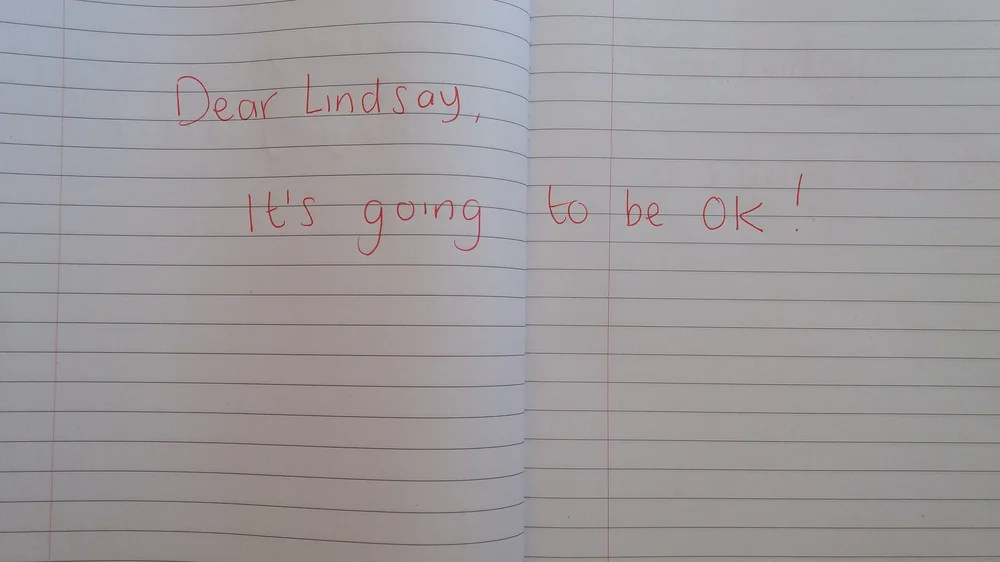 Dear Lindsay,
It's going to be OK!